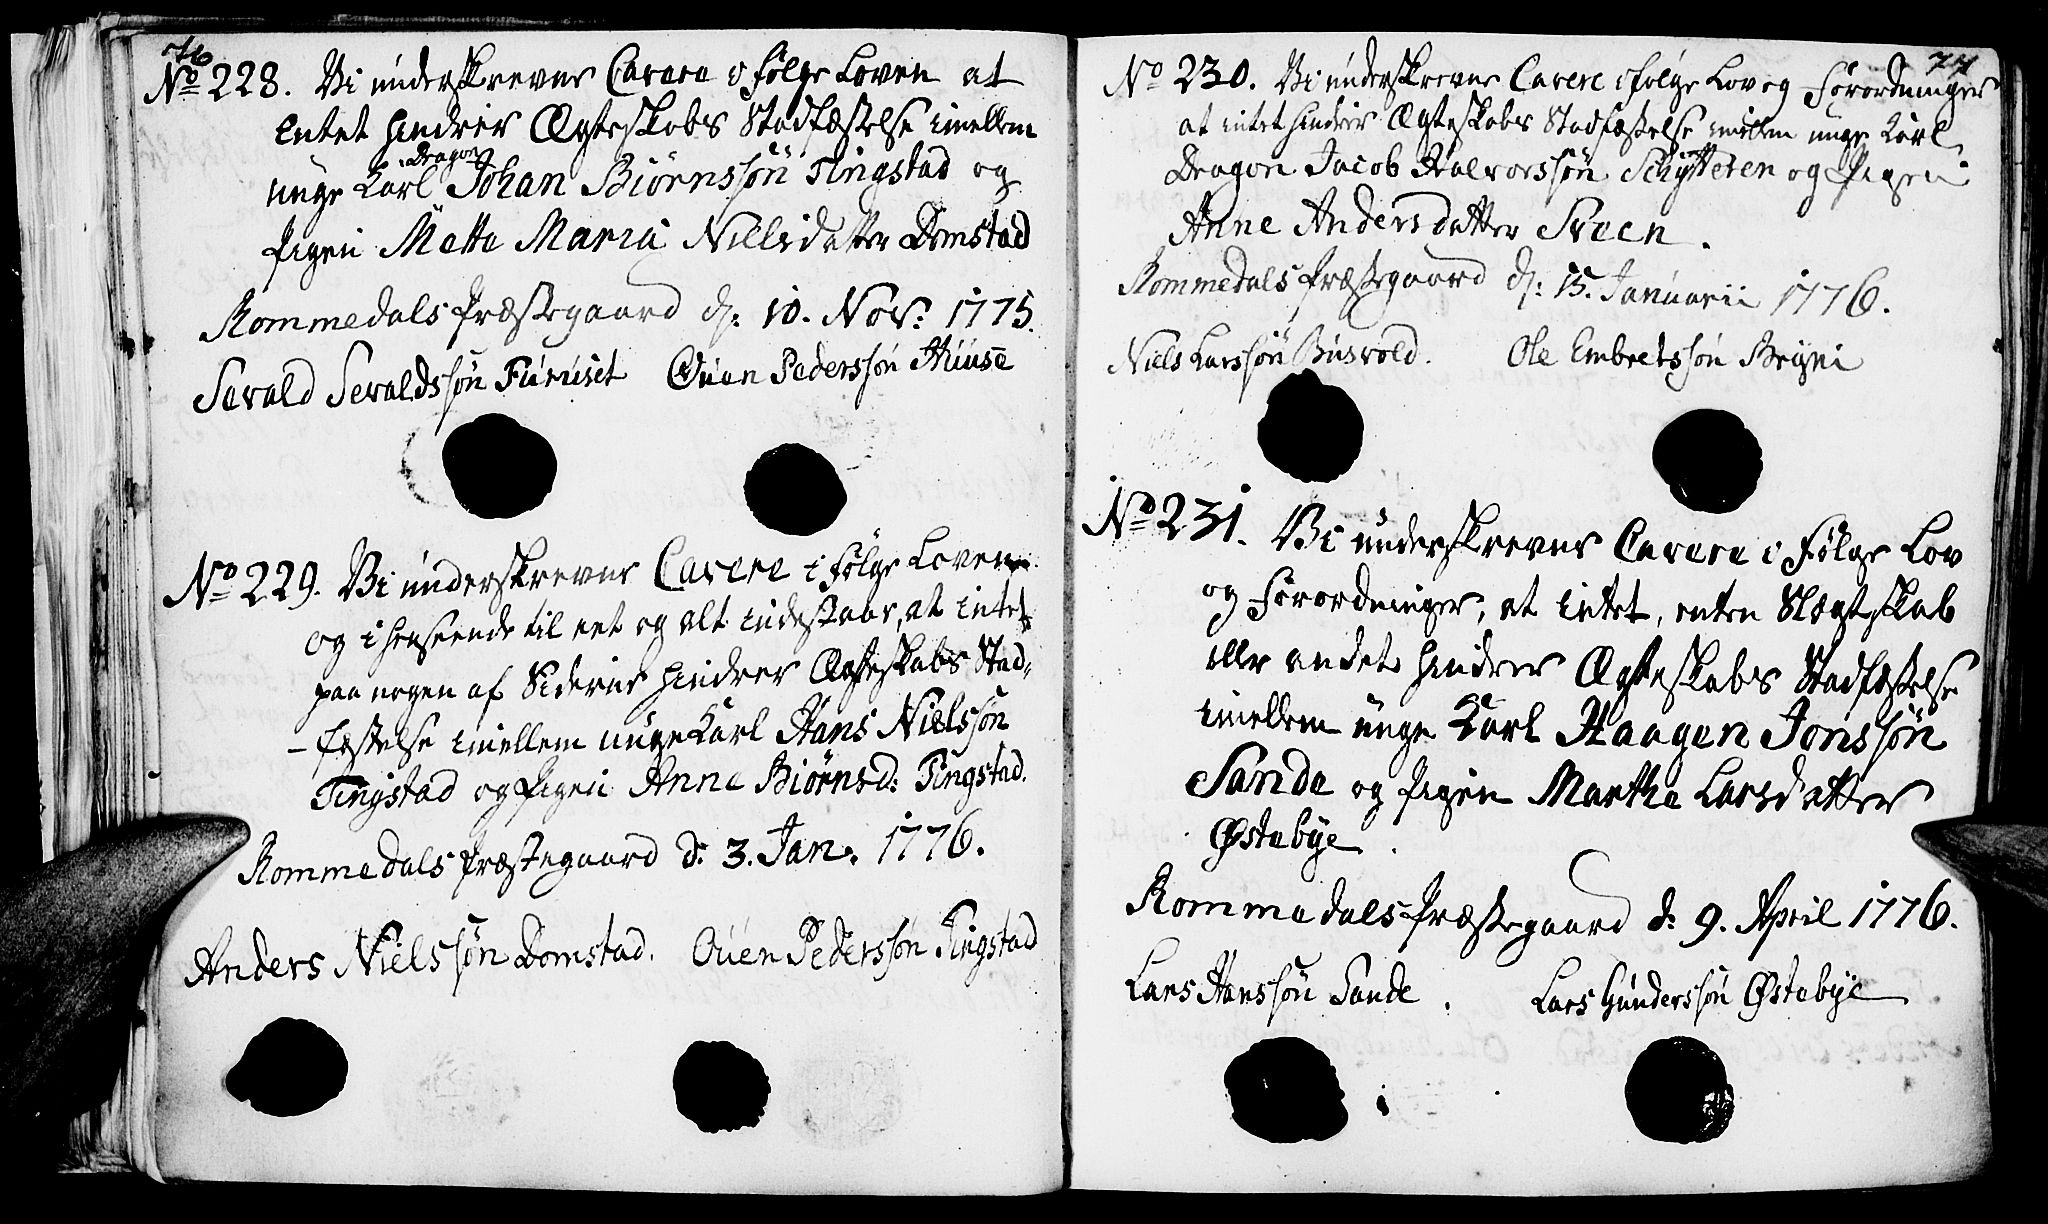 76
No 228. Vi underskrevne Cavere i følge Loven at
intet hindrer Ægteskabs Stadfæstelse imellem
unge Karl Dragon Johan Biörnssön Tingstad og
Pigen Mette Maria Nielsdatter Domstad
Rommedals Præstegaard d: 10. Nov: 1775.
Sevald Sevaldssön Furuset Ouen Pederssön Huuse
No 229. Vi underskrevne Cavere i følge Loven
og i henseende til eet og alt indestaar, at intet
paa nogen af Siderne hindrer Ægteskabs Stad-
fæstelse imellem unge Karl Hans Nielssön
Tingstad og Pigen Anne Biörnsd: Tingstad.
Rommedals Præstegaard d: 3. Jan: 1776.
Anders Nielssön Domstad. Ouen Pederssön Tingstad
77
No 230. Vi underskrevne Cavere i følge Lov og Forordninger
at intet hindrer Ægteskabs Stadfæstelse imellem unge Karl
Dragon Jacob Halvorssön Schytteren og Pigen
Anne Andersdatter Sveen.
Rommedals Præstegaard d: 15. Januarii 1776.
Niels Larssön Busvold. Ole Embretssön Bryni
No 231. Vi underskrevne Cavere i Følge Lov
og Forordninger, at intet, enten Slægtskab
eller andet hindrer Ægteskabs Stadfæstelse
imellem unge Karl Haagen Jonssön
Sande og Pigen Marthe Larsdatter
Østebye.
Rommedals Præstegaard d: 9. April 1776.
Lars Hanssön Sande. Lars Gunderssön Østebye